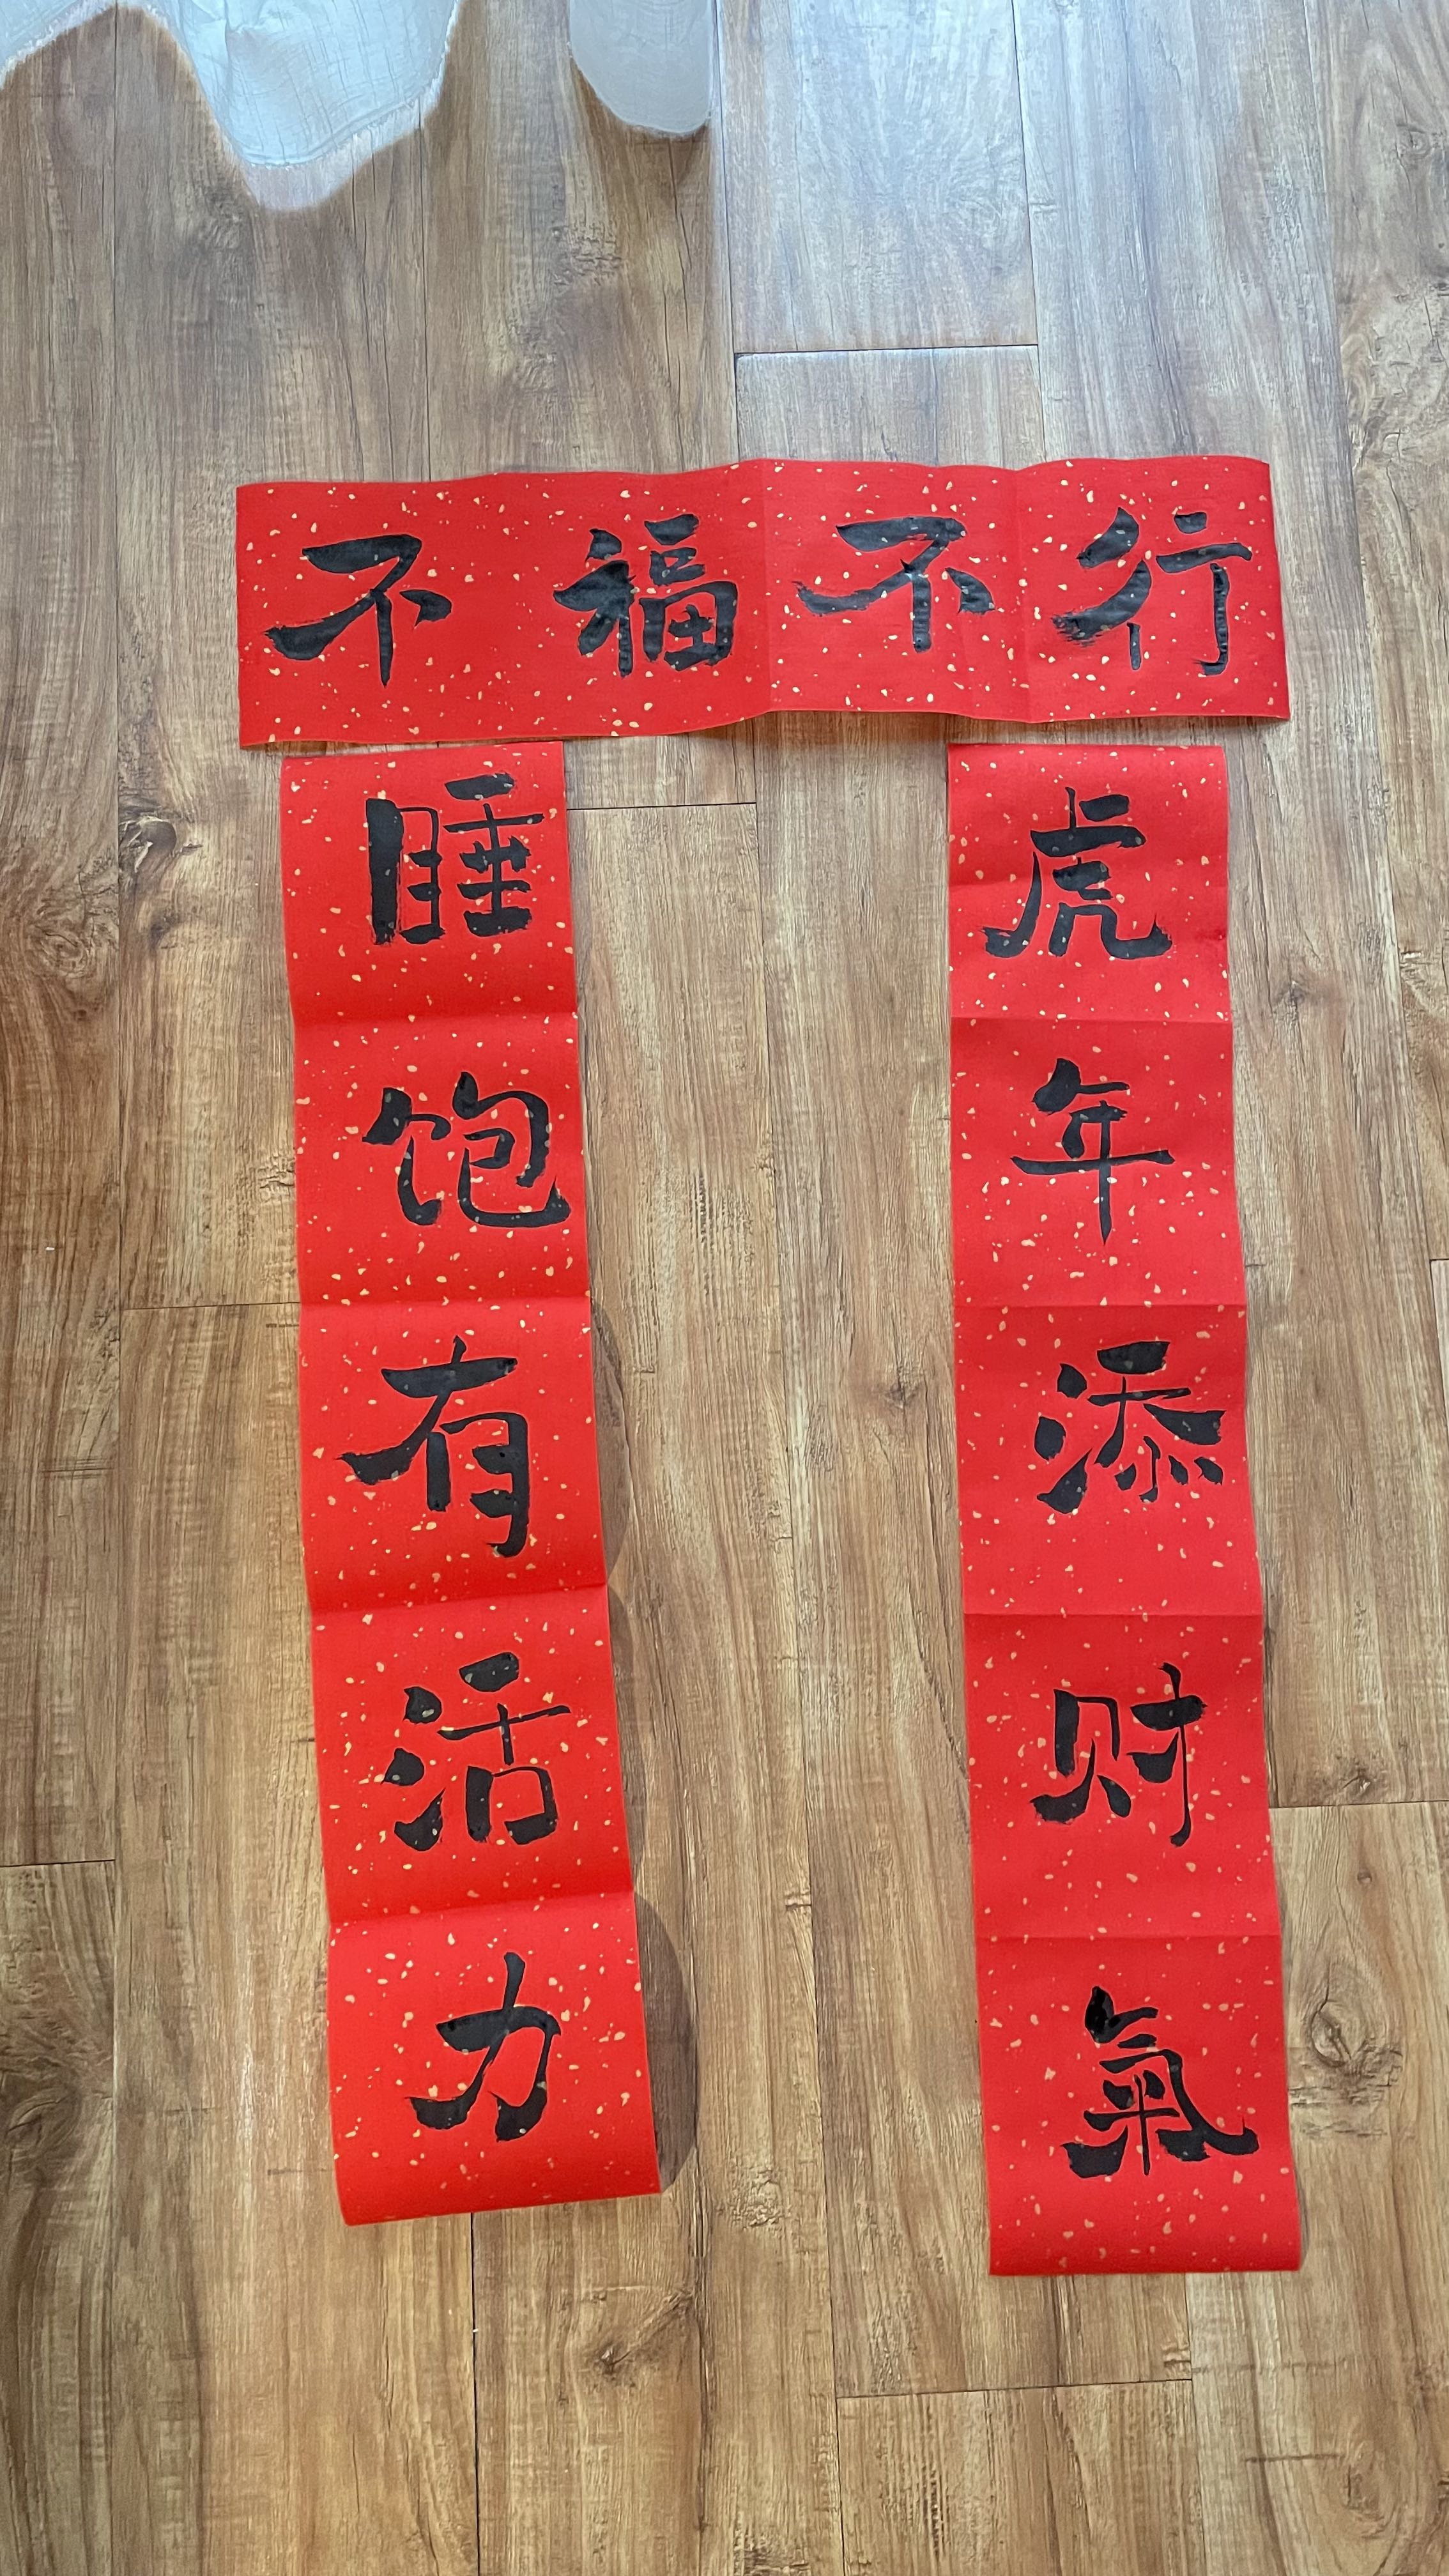 不福不行
虎年添财氣
睡饱有活力